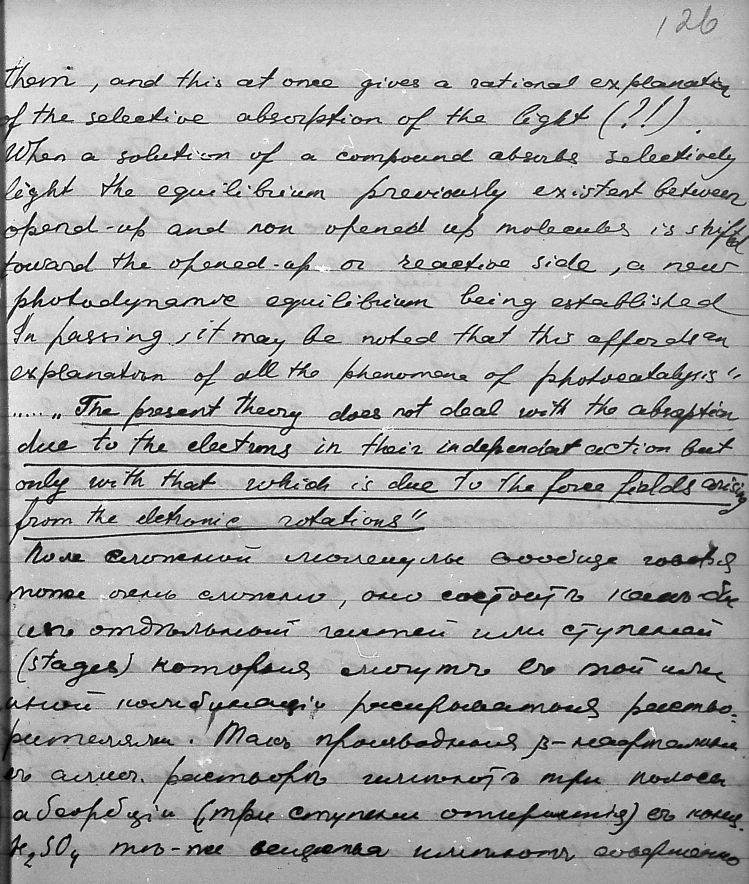 126
them, and this at once gives a rational explanation
of the selective absorption of the light (?!)
When a solution of a compound absorbs selectively
light the equilibrium previously existent between
opend-up and non opened up molecules is shifted
toward the opened-up or reactive side, a new
photodynamic equilibrium being established
In passing, it may be noted that this affords an
explanation of all the phenomena of photocatalysis"
...... „The present theory does not deal with the absorption
due to the electrons in their independent action but
only with that which is due to the force fields arising
from the eletronic rotations"
Поле сложной молекулы вообще говоря
тоже очень сложно, оно состоитъ какъ-бы
изъ отдѣльный частей или ступеней
(stages) которыя могутъ въ той или
иной комбинаціи раскрываться раство-
рителями. Такъ производныя β-нафталина
въ алког. растворѣ имѣютъ три полосы
абсорбціи (три ступени открытія) въ конц.
H₂SO₄ тѣ-же вещества имѣютъ совершенно